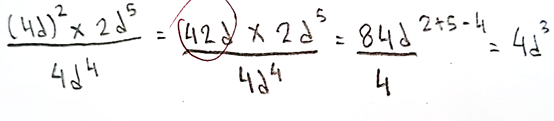 (4d)² × 2d⁵ / 4d⁴ = 42d × 2d⁵ / 4d⁴ = 84d²⁺⁵⁻⁴ / 4 = 4d³